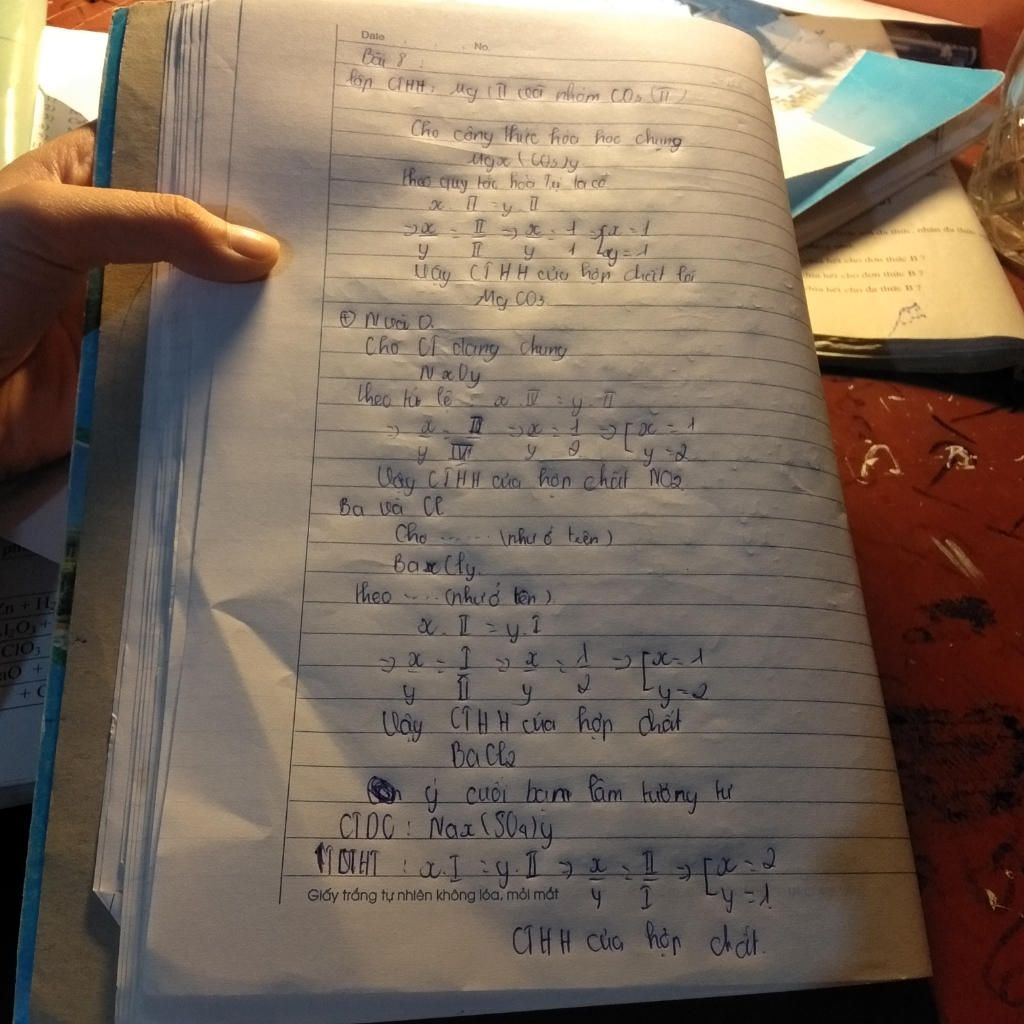 Date . . . No.
Bài 8 :
lập CTHH: Mg (II với nhóm CO3 (II)
Cho công thức hóa học chung
Mgx (CO3)y
theo quy tắc hóa trị ta có
x . II = y . II
=> x/y = II/II => x/y = 1/1 => [x = 1
y = 1
Vậy CTHH của hợp chất là
MgCO3
(+) N với O.
Cho CT dạng chung
NxOy
theo tỉ lệ = x . IV = y . II
=> x/y = II/IV => x/y = 1/2 => [x = 1
y = 2
Vậy CTHH của hợp chất NO2
Ba và Cl
Cho ...... (như ở trên)
BaxCly.
theo .... (như ở tên).
x . II = y . I
=> x/y = I/II => x/y = 1/2 => [x = 1
y = 2
Vậy CTHH của hợp chất
BaCl2
ý cuối bạn làm tương tự
CTDC : Nax(SO4)y
: x . I = y . II => x/y = II/I => [x = 2
y = 1
Giấy trắng tự nhiên không lóa, mỏi mắt
CTHH của hợp chất.
Zn + H2
Al2O3 +
ClO3
aO +
+ C
hia hết cho đơn thức B ?
hia hết cho đơn thức B ?
hia hết cho đa thức B ?